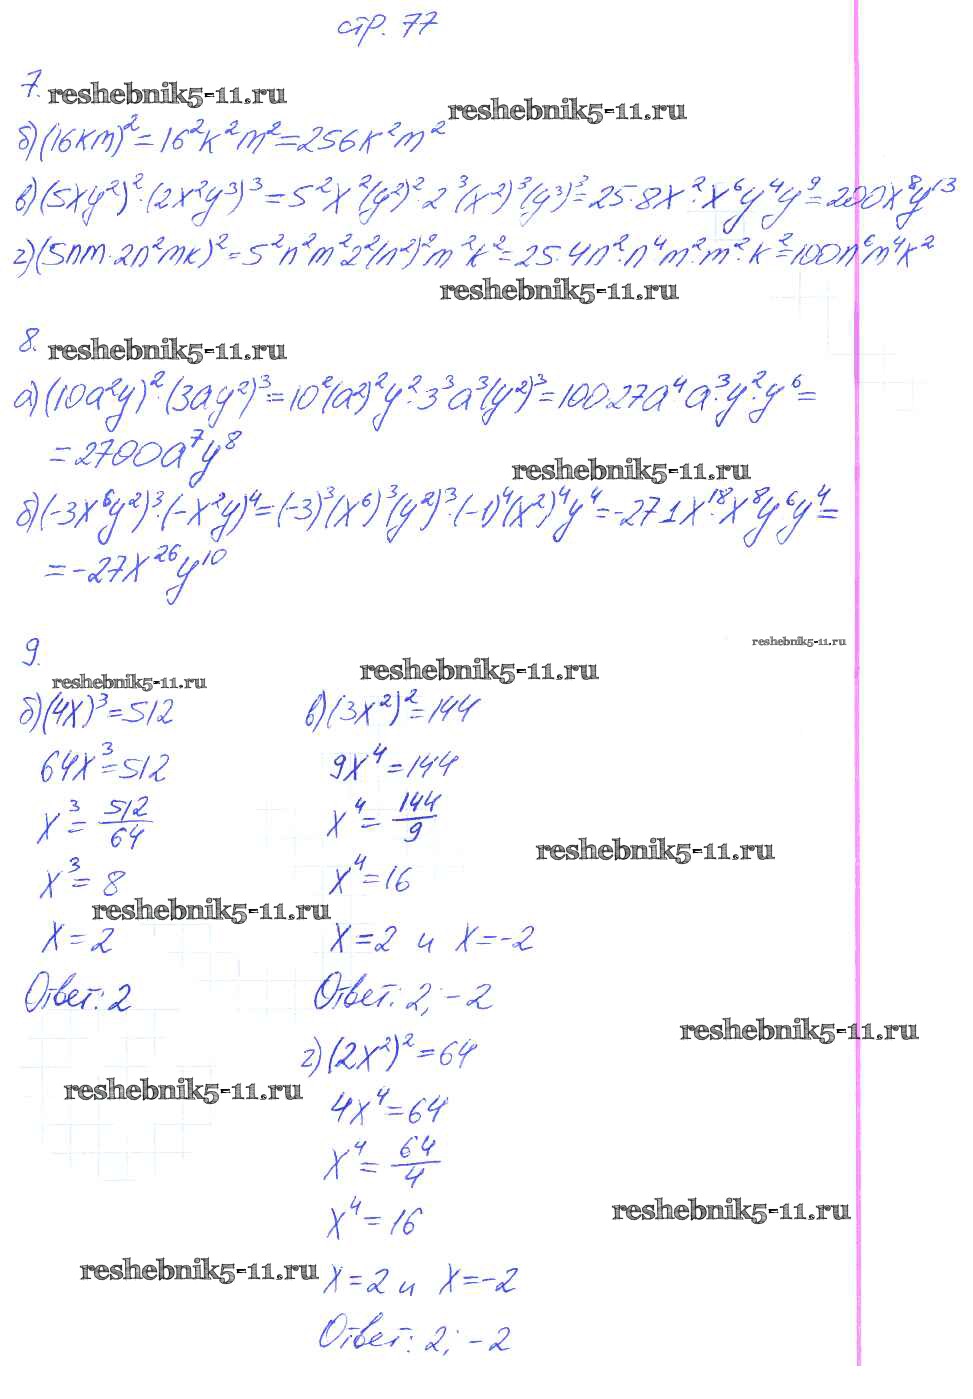 стр. 77
7. reshebnik5-11.ru
reshebnik5-11.ru
б) (16km)² = 16²k²m² = 256k²m²
в) (5xy²)²·(2x²y³)³ = 5²x²(y²)²·2³(x²)³(y³)³ = 25·8x²·x⁶y⁴y⁹ = 200x⁸y¹³
г) (5nm·2n²mk)² = 5²n²m²2²(n²)²m²k² = 25·4n²·n⁴m²·m²·k² = 100n⁶m⁴k²
reshebnik5-11.ru
8. reshebnik5-11.ru
а) (10a²y)²·(3ay²)³ = 10²(a²)²y²·3³a³(y²)³ = 100·27a⁴·a³y²·y⁶ =
= 2700a⁷y⁸
reshebnik5-11.ru
б) (-3x⁶y²)³·(-x²y)⁴ = (-3)³(x⁶)³(y²)³·(-1)⁴(x²)⁴y⁴ = -27·1x¹⁸·x⁸y⁶y⁴ =
= -27x²⁶y¹⁰
9.
reshebnik5-11.ru
reshebnik5-11.ru
reshebnik5-11.ru
б) (4x)³ = 512
64x³ = 512
x³ = 512/64
x³ = 8
reshebnik5-11.ru
x = 2
Ответ: 2
в) (3x²)² = 144
9x⁴ = 144
x⁴ = 144/9
reshebnik5-11.ru
x⁴ = 16
x = 2 и x = -2
Ответ: 2; -2
reshebnik5-11.ru
г) (2x²)² = 64
reshebnik5-11.ru
4x⁴ = 64
x⁴ = 64/4
x⁴ = 16
reshebnik5-11.ru
reshebnik5-11.ru
x = 2 и x = -2
Ответ: 2; -2